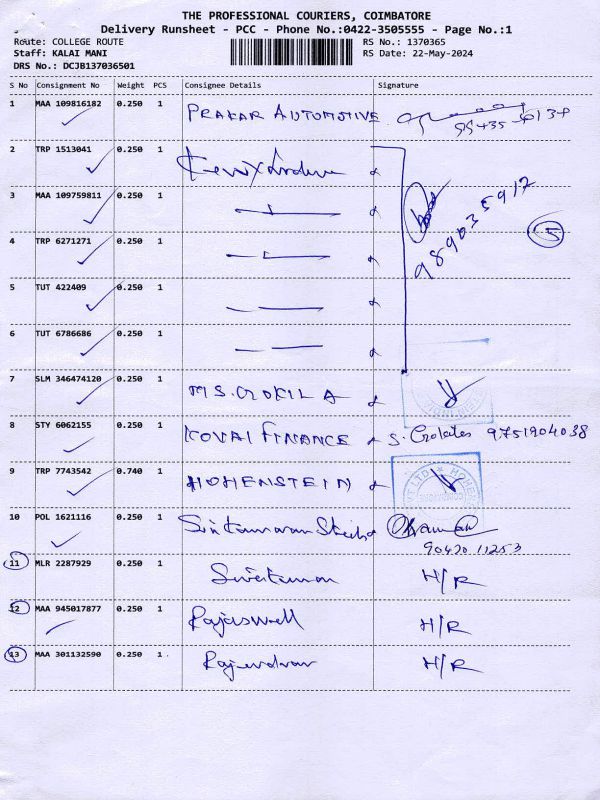 THE PROFESSIONAL COURIERS, COIMBATORE
Delivery Runsheet - PCC - Phone No.:0422-3505555 - Page No.:1
Route: COLLEGE ROUTE RS No.: 1370365
Staff: KALAI MANI RS Date: 22-May-2024
DRS No.: DCJB137036501
S No Consignment No Weight PCS Consignee Details Signature
1 MAA 109816182 0.250 1 PRAKAR AUTOMOTIVE
2 TRP 1513041 0.250 1
3 MAA 109759811 0.250 1
9890355917
5
4 TRP 6271271 0.250 1
5 TUT 422409 0.250 1
6 TUT 6786686 0.250 1
7 SLM 346474120 0.250 1 MS. GOKILA
8 STY 6062155 0.250 1 KOVAI FINANCE 9751904038
9 TRP 7743542 0.740 1 HOHENSTEIN
10 POL 1621116 0.250 1
90420 11253
11 MLR 2287929 0.250 1 H/R
12 MAA 945017877 0.250 1 H/R
13 MAA 301132590 0.250 1 Rajendran H/R